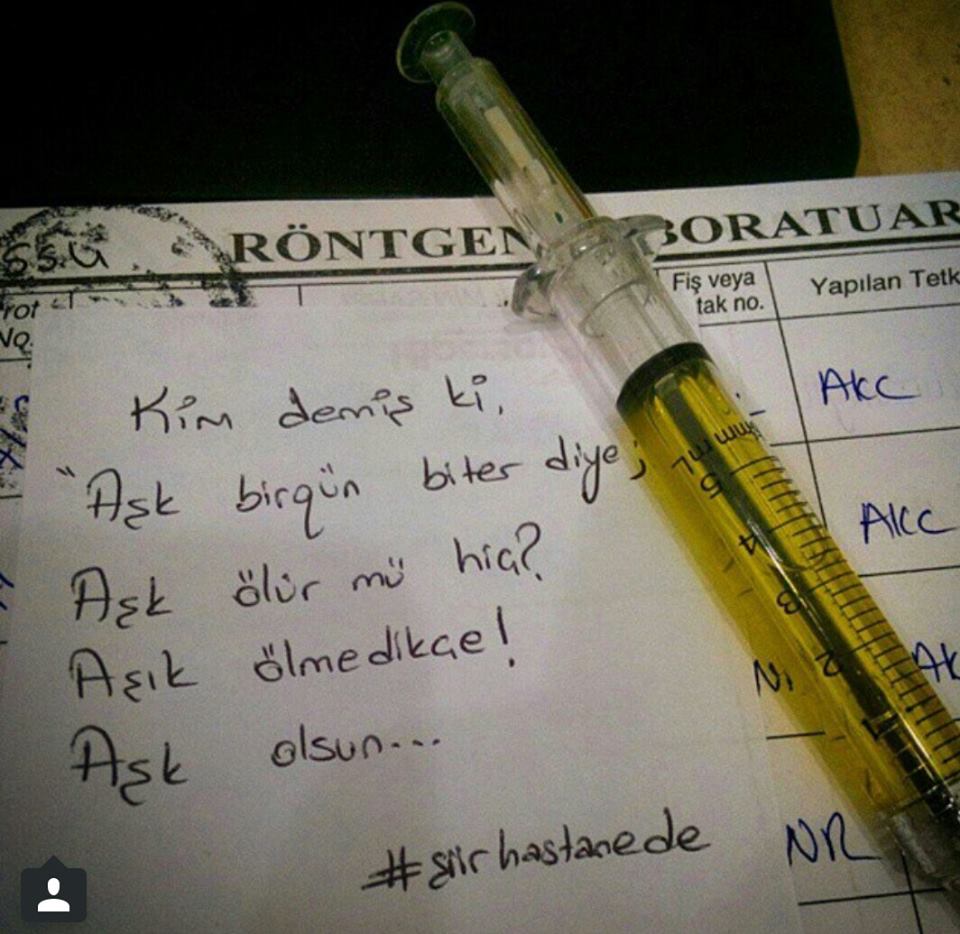 SSG
RÖNTGEN BORATUAR
rot
No.
Fiş veya
tak no.
Yapılan Tetk
Kim demiş ki,
"Aşk birgün biter diye;
Aşk ölür mü hiç?
Aşık ölmedikçe!
Aşk olsun...
#şiirhastanede
AKC
AKC
AK
NR
mL
5
4
3
2
1